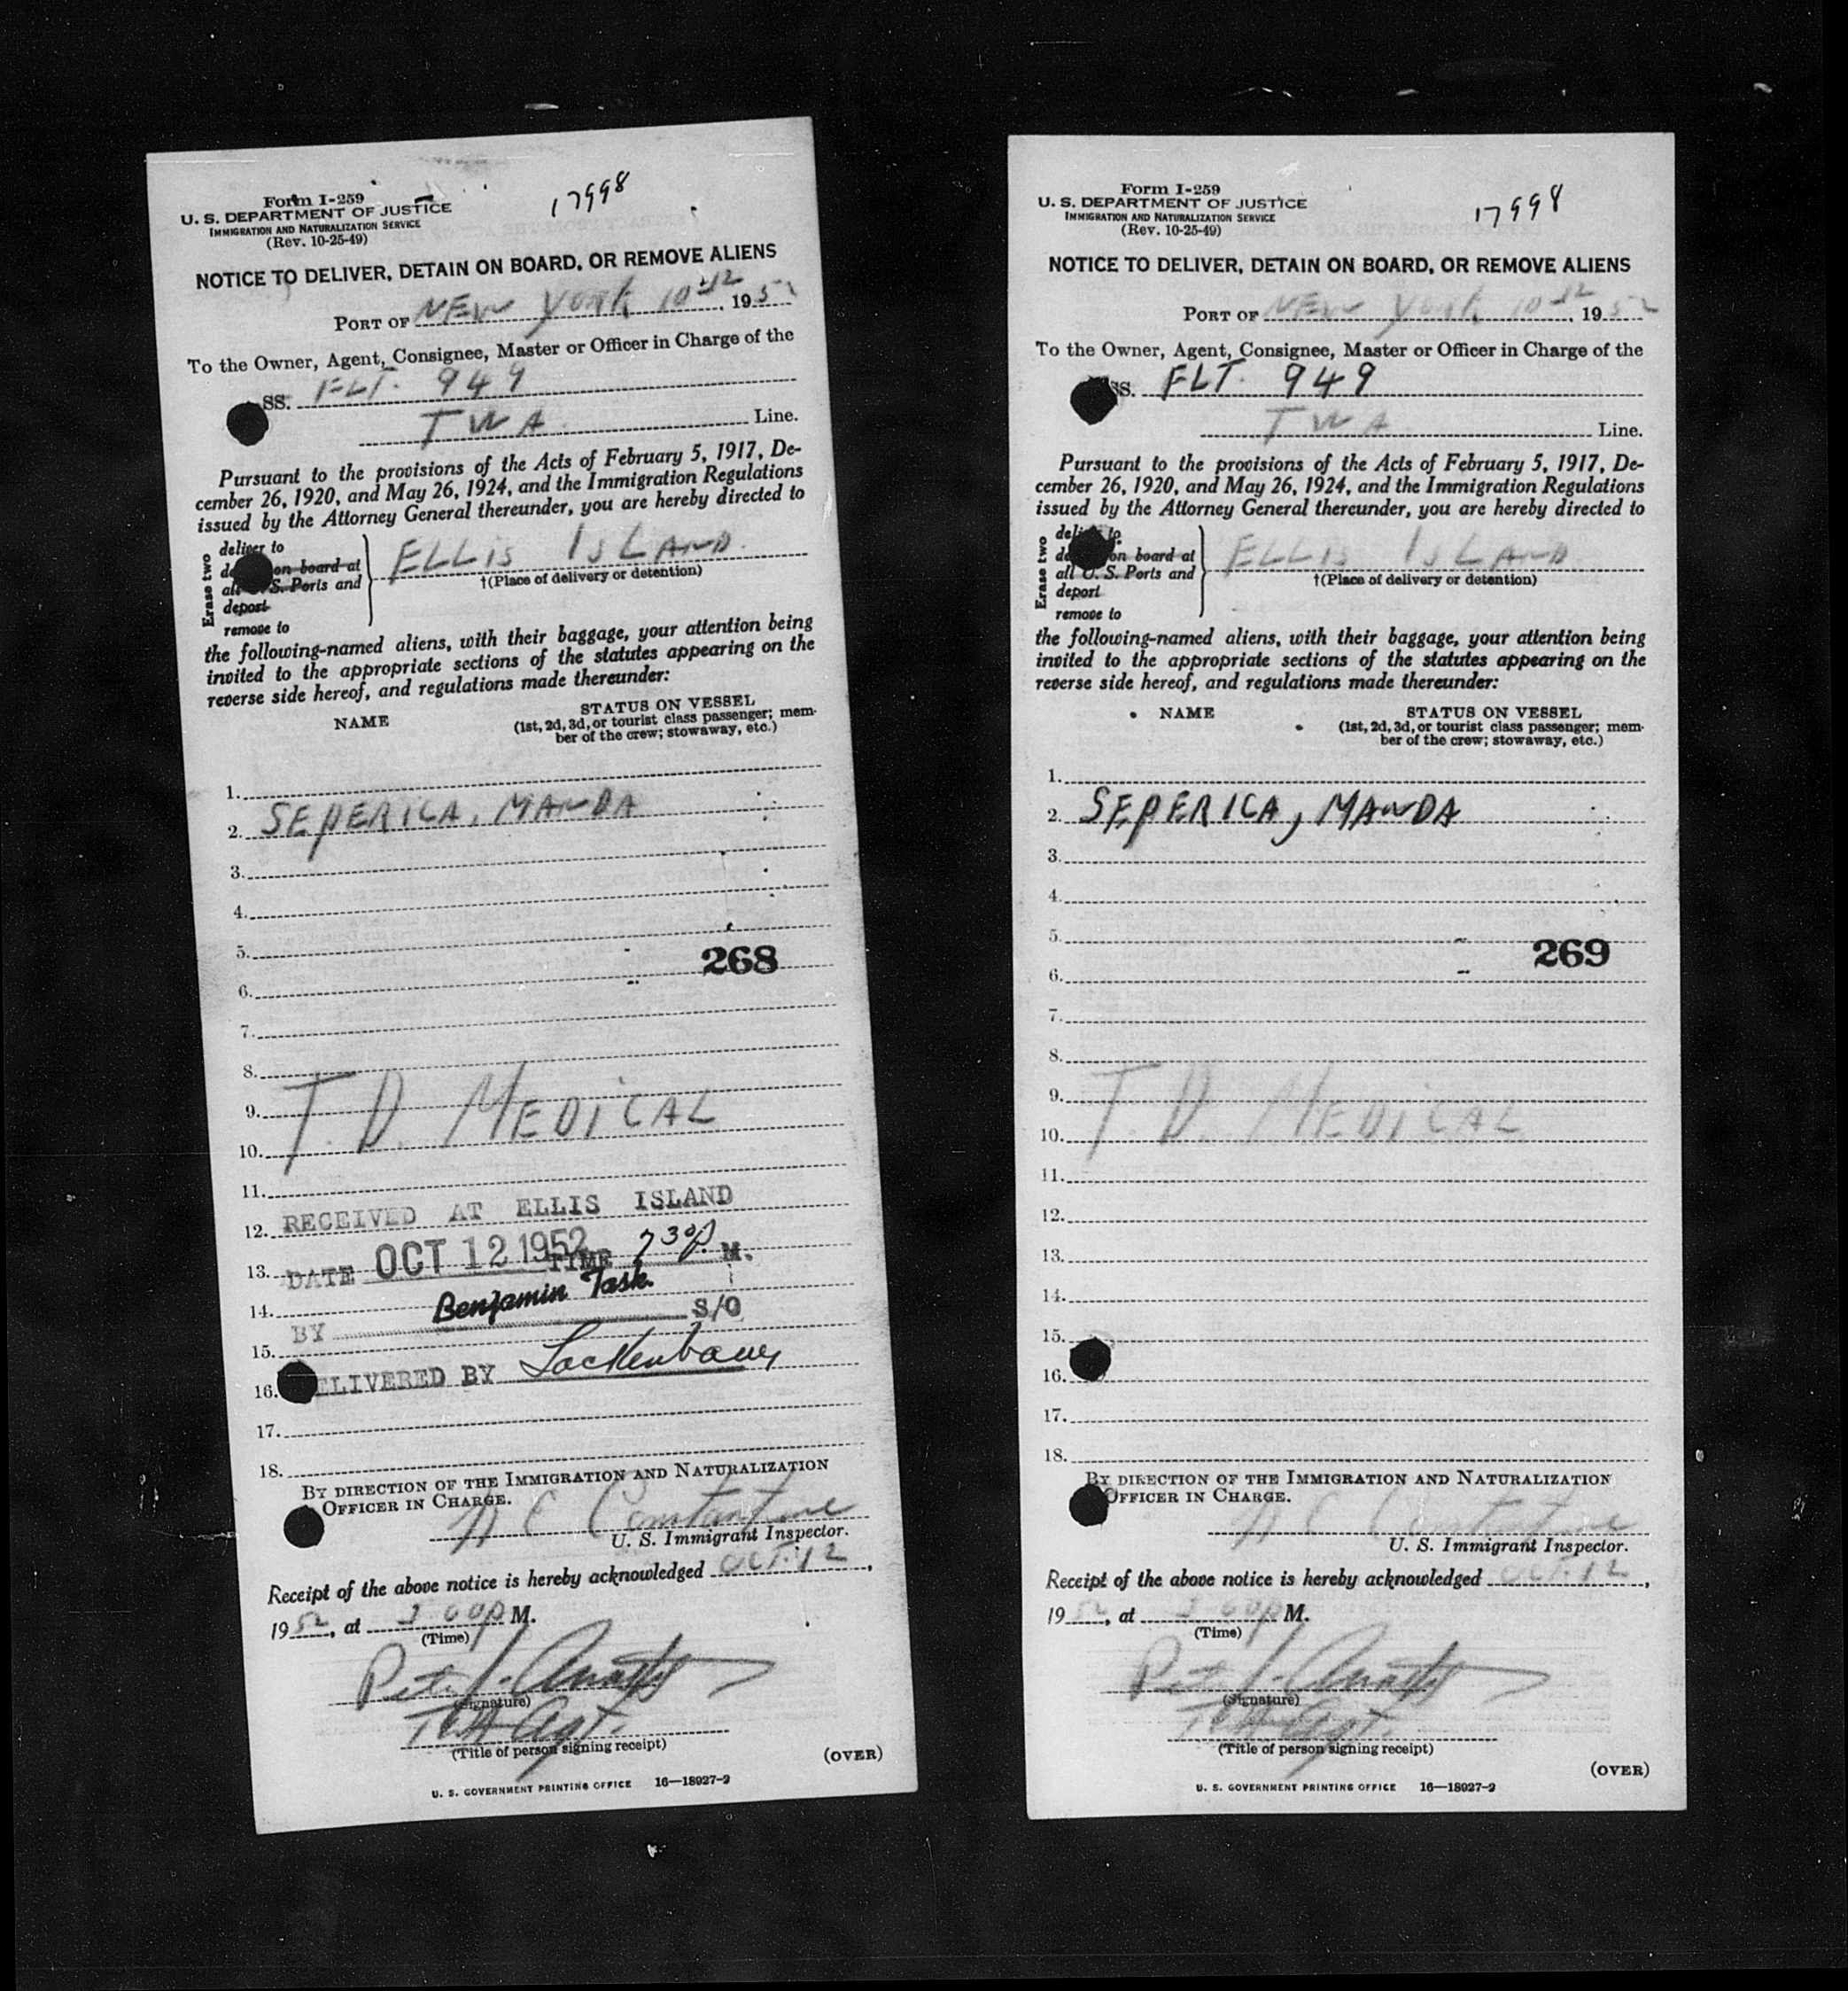 Form I-259
U. S. DEPARTMENT OF JUSTICE
IMMIGRATION AND NATURALIZATION SERVICE
(Rev. 10-25-49)
17998
NOTICE TO DELIVER, DETAIN ON BOARD, OR REMOVE ALIENS
PORT OF NEW YORK 10-12, 1952
To the Owner, Agent, Consignee, Master or Officer in Charge of the
SS. FLT. 949
TWA Line.
Pursuant to the provisions of the Acts of February 5, 1917, De-
cember 26, 1920, and May 26, 1924, and the Immigration Regulations
issued by the Attorney General thereunder, you are hereby directed to
Erase two
deliver to
on board at
all U.S. Ports and
deport
remove to
ELLIS ISLAND
†(Place of delivery or detention)
the following-named aliens, with their baggage, your attention being
invited to the appropriate sections of the statutes appearing on the
reverse side hereof, and regulations made thereunder:
NAME
STATUS ON VESSEL
(1st, 2d, 3d, or tourist class passenger; mem-
ber of the crew; stowaway, etc.)
1.
2. SEPERICA, MANDA
3.
4.
5.
268
6.
7.
8.
9. T.D. MEDICAL
10.
11.
12. RECEIVED AT ELLIS ISLAND
13. DATE OCT 12 1952 TIME 730P M.
14. Benjamin Task
BY S/O
15.
16. DELIVERED BY Lackenbauer
17.
18.
BY DIRECTION OF THE IMMIGRATION AND NATURALIZATION
OFFICER IN CHARGE.
Constantine
U. S. Immigrant Inspector.
Receipt of the above notice is hereby acknowledged OCT. 12,
1952, at 3 00p M.
(Time)
(Signature)
TWA Agt.
(Title of person signing receipt)
(OVER)
U. S. GOVERNMENT PRINTING OFFICE 16—18927-2
Form I-259
U. S. DEPARTMENT OF JUSTICE
IMMIGRATION AND NATURALIZATION SERVICE
(Rev. 10-25-49)
17998
NOTICE TO DELIVER, DETAIN ON BOARD, OR REMOVE ALIENS
PORT OF NEW YORK 10-12, 1952
To the Owner, Agent, Consignee, Master or Officer in Charge of the
SS. FLT. 949
TWA Line.
Pursuant to the provisions of the Acts of February 5, 1917, De-
cember 26, 1920, and May 26, 1924, and the Immigration Regulations
issued by the Attorney General thereunder, you are hereby directed to
Erase two
deliver to
on board at
all U. S. Ports and
deport
remove to
ELLIS ISLAND
†(Place of delivery or detention)
the following-named aliens, with their baggage, your attention being
invited to the appropriate sections of the statutes appearing on the
reverse side hereof, and regulations made thereunder:
NAME
STATUS ON VESSEL
(1st, 2d, 3d, or tourist class passenger; mem-
ber of the crew; stowaway, etc.)
1.
2. SEPERICA, MANDA
3.
4.
5.
269
6.
7.
8.
9. T.D. MEDICAL
10.
11.
12.
13.
14.
15.
16.
17.
18.
BY DIRECTION OF THE IMMIGRATION AND NATURALIZATION
OFFICER IN CHARGE.
Constantine
U. S. Immigrant Inspector.
Receipt of the above notice is hereby acknowledged OCT. 12,
1952, at 3 00p M.
(Time)
(Signature)
TWA Agt.
(Title of person signing receipt)
(OVER)
U. S. GOVERNMENT PRINTING OFFICE 16—18927-2